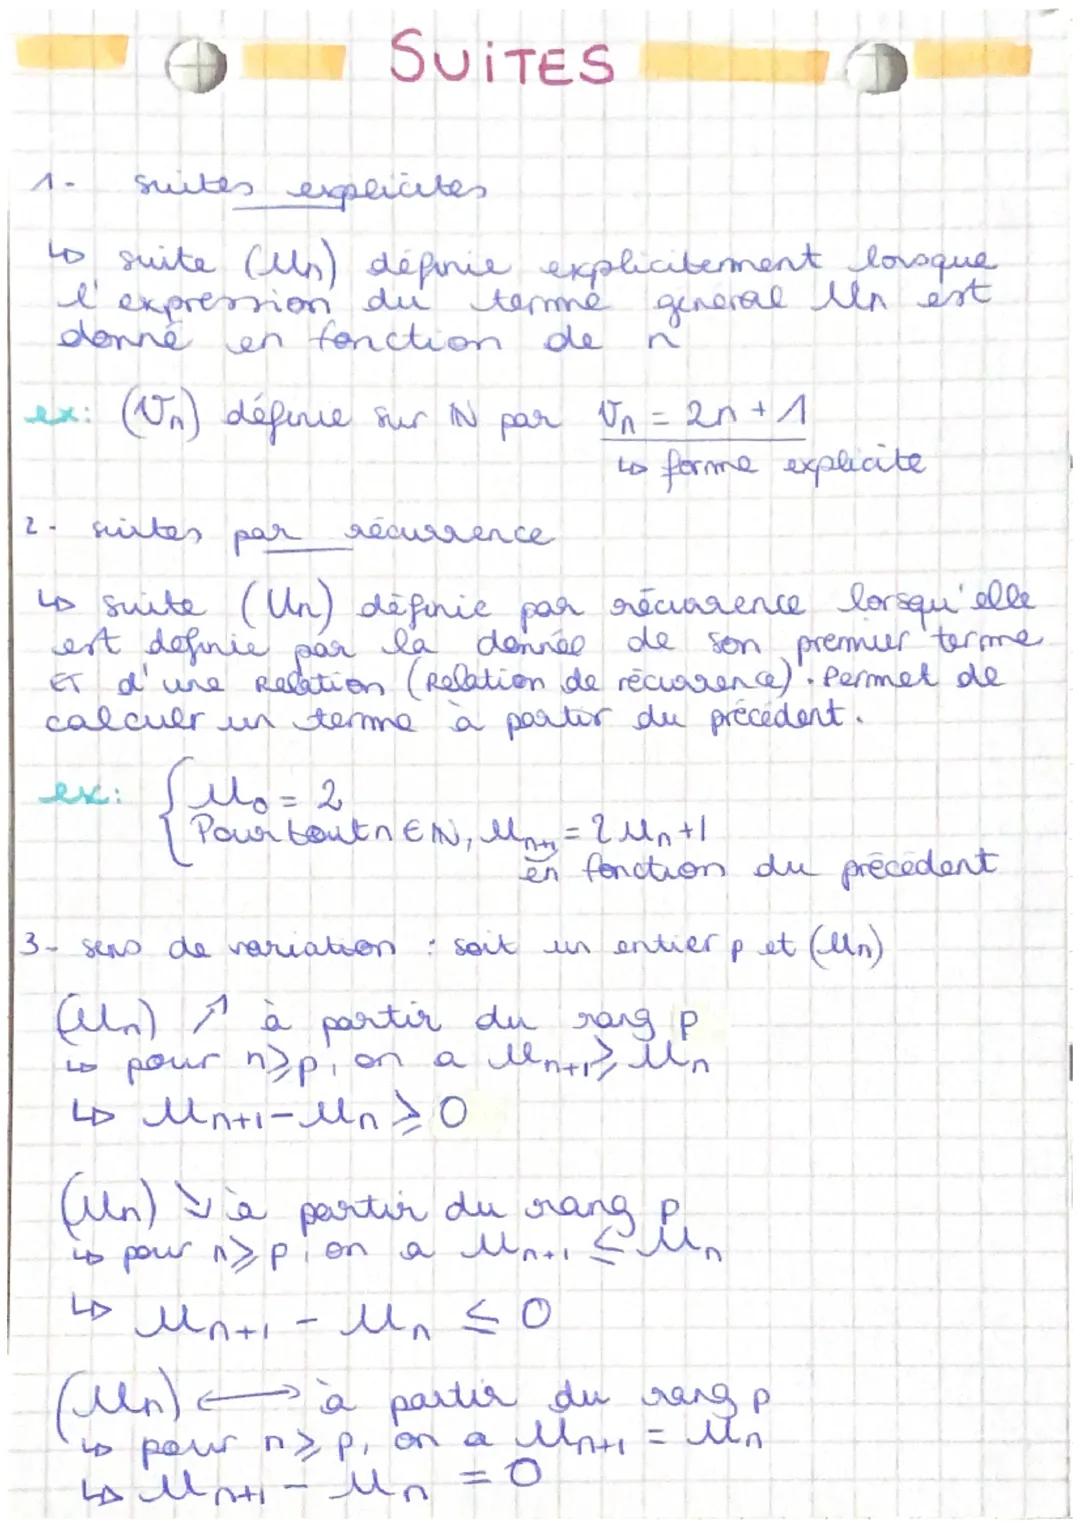 SUiTES
1- suites explicites
↳ suite (Un) définie explicitement lorsque
l'expression du terme général Un est
donné en fonction de n
ex: (Vn) définie sur ℕ par Vn = 2n + 1
↳ forme explicite
2- suites par récurrence
↳ suite (Un) définie par récurrence lorsqu'elle
est définie par la donnée de son premier terme
ET d'une Relation (Relation de récurrence). Permet de
calculer un terme à partir du précédent.
ex: { U0 = 2
Pour tout n ∈ ℕ, Un+1 = 2Un + 1
en fonction du précédent
3- sens de variation : soit un entier p et (Un)
(Un) ↗ à partir du rang p
↳ pour n ⩾ p, on a Un+1 ⩾ Un
↳ Un+1 - Un ⩾ 0
(Un) ↘ à partir du rang p
↳ pour n ⩾ p, on a Un+1 ≤ Un
↳ Un+1 - Un ≤ 0
(Un) ⟷ à partir du rang p
↳ pour n ⩾ p, on a Un+1 = Un
↳ Un+1 - Un = 0